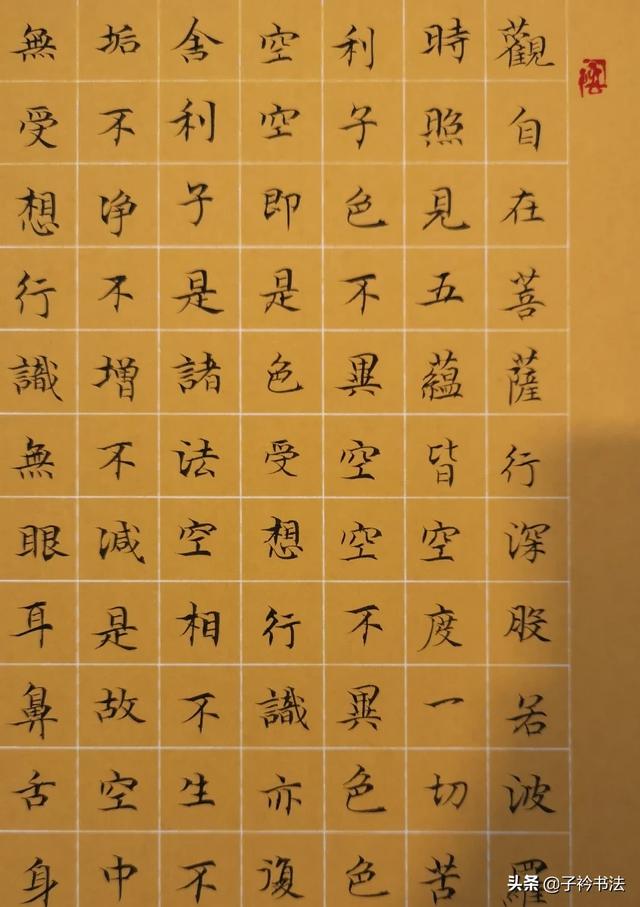 觀自在菩薩行深般若波羅
時照見五蘊皆空度一切苦
利子色不異空空不異色色
空空即是色受想行識亦復
舍利子是諸法空相不生不
垢不净不增不減是故空中
無受想行識無眼耳鼻舌身
头条 @子衿书法